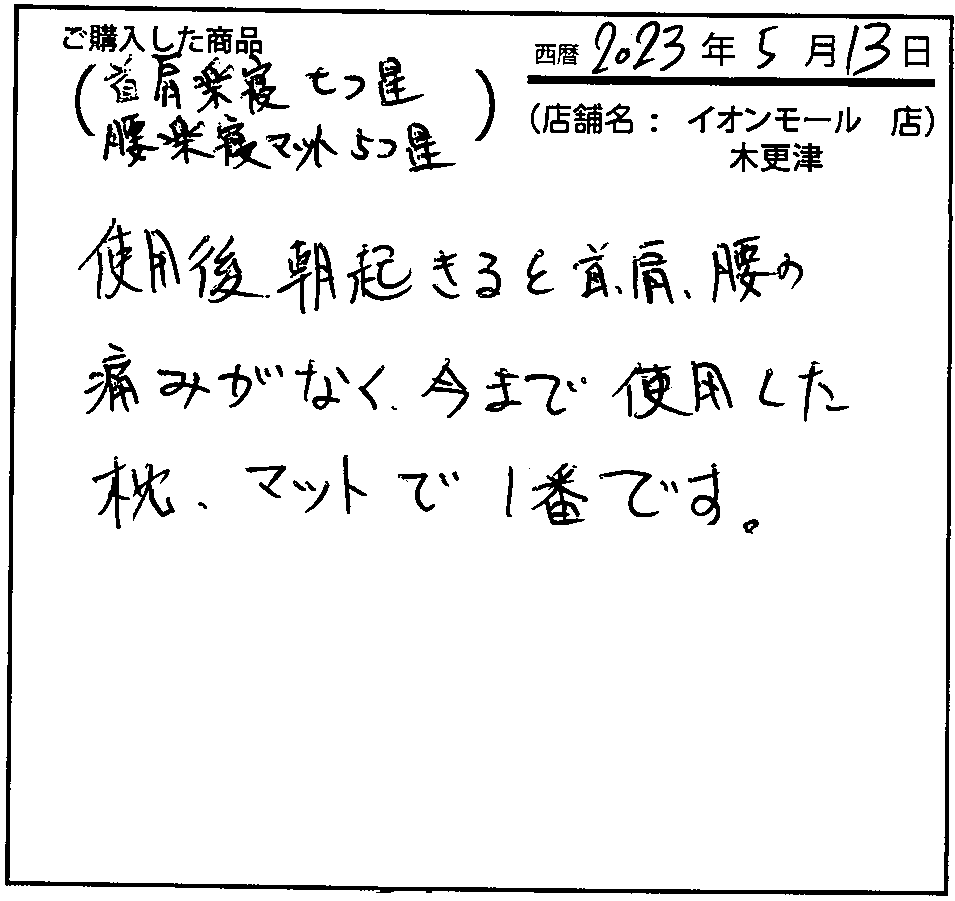 ご購入した商品
(首肩楽寝 七つ星
腰楽寝マット 5つ星)
西暦 2023 年 5 月 13 日
(店舗名： イオンモール 店)
木更津
使用後、朝起きると首、肩、腰の
痛みがなく、今まで使用した
枕、マットで1番です。